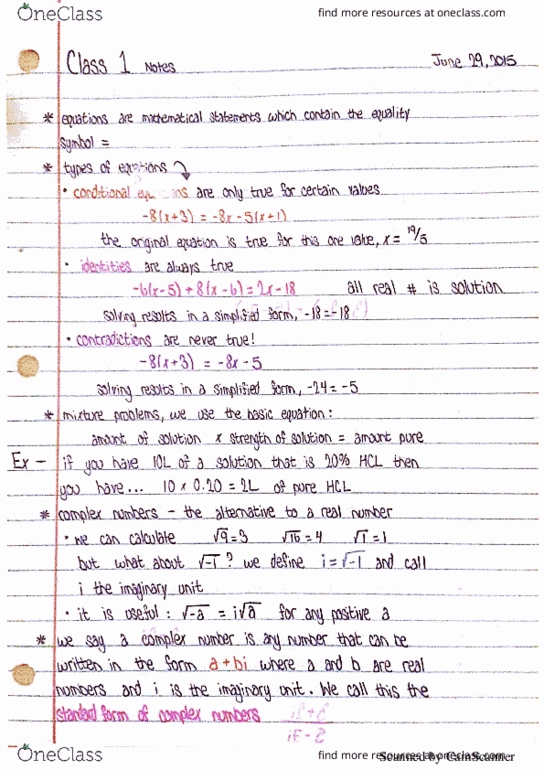 OneClass
find more resources at oneclass.com
Class 1 Notes
June 29, 2015
* equations are mathematical statements which contain the equality
symbol =
* types of equations
• conditional are only true for certain values
-8(x+3) = -8x-5(x+1)
the original equation is true for this one value, x = 19/5
• identities are always true
-6(x-5) + 8(x-6) = 2x-18 all real # is solution
solving results in a simplified form, -18=-18
• contradictions are never true!
-8(x+3) = -8x-5
solving results in a simplified form, -24=-5
* mixture problems, we use the basic equation:
amount of solution x strength of solution = amount pure
Ex - if you have 10L of a solution that is 20% HCL then
you have... 10 x 0.20 = 2L of pure HCL
* complex numbers - the alternative to a real number
• we can calculate √9=3 √16=4 √1=1
but what about √-1? we define i=√-1 and call
i the imaginary unit
• it is useful: √-a = i√a for any positive a
* we say a complex number is any number that can be
written in the form a+bi where a and b are real
numbers and i is the imaginary unit. We call this the
standard form of complex numbers
OneClass
find more resources at oneclass.com
Scanned by CamScanner